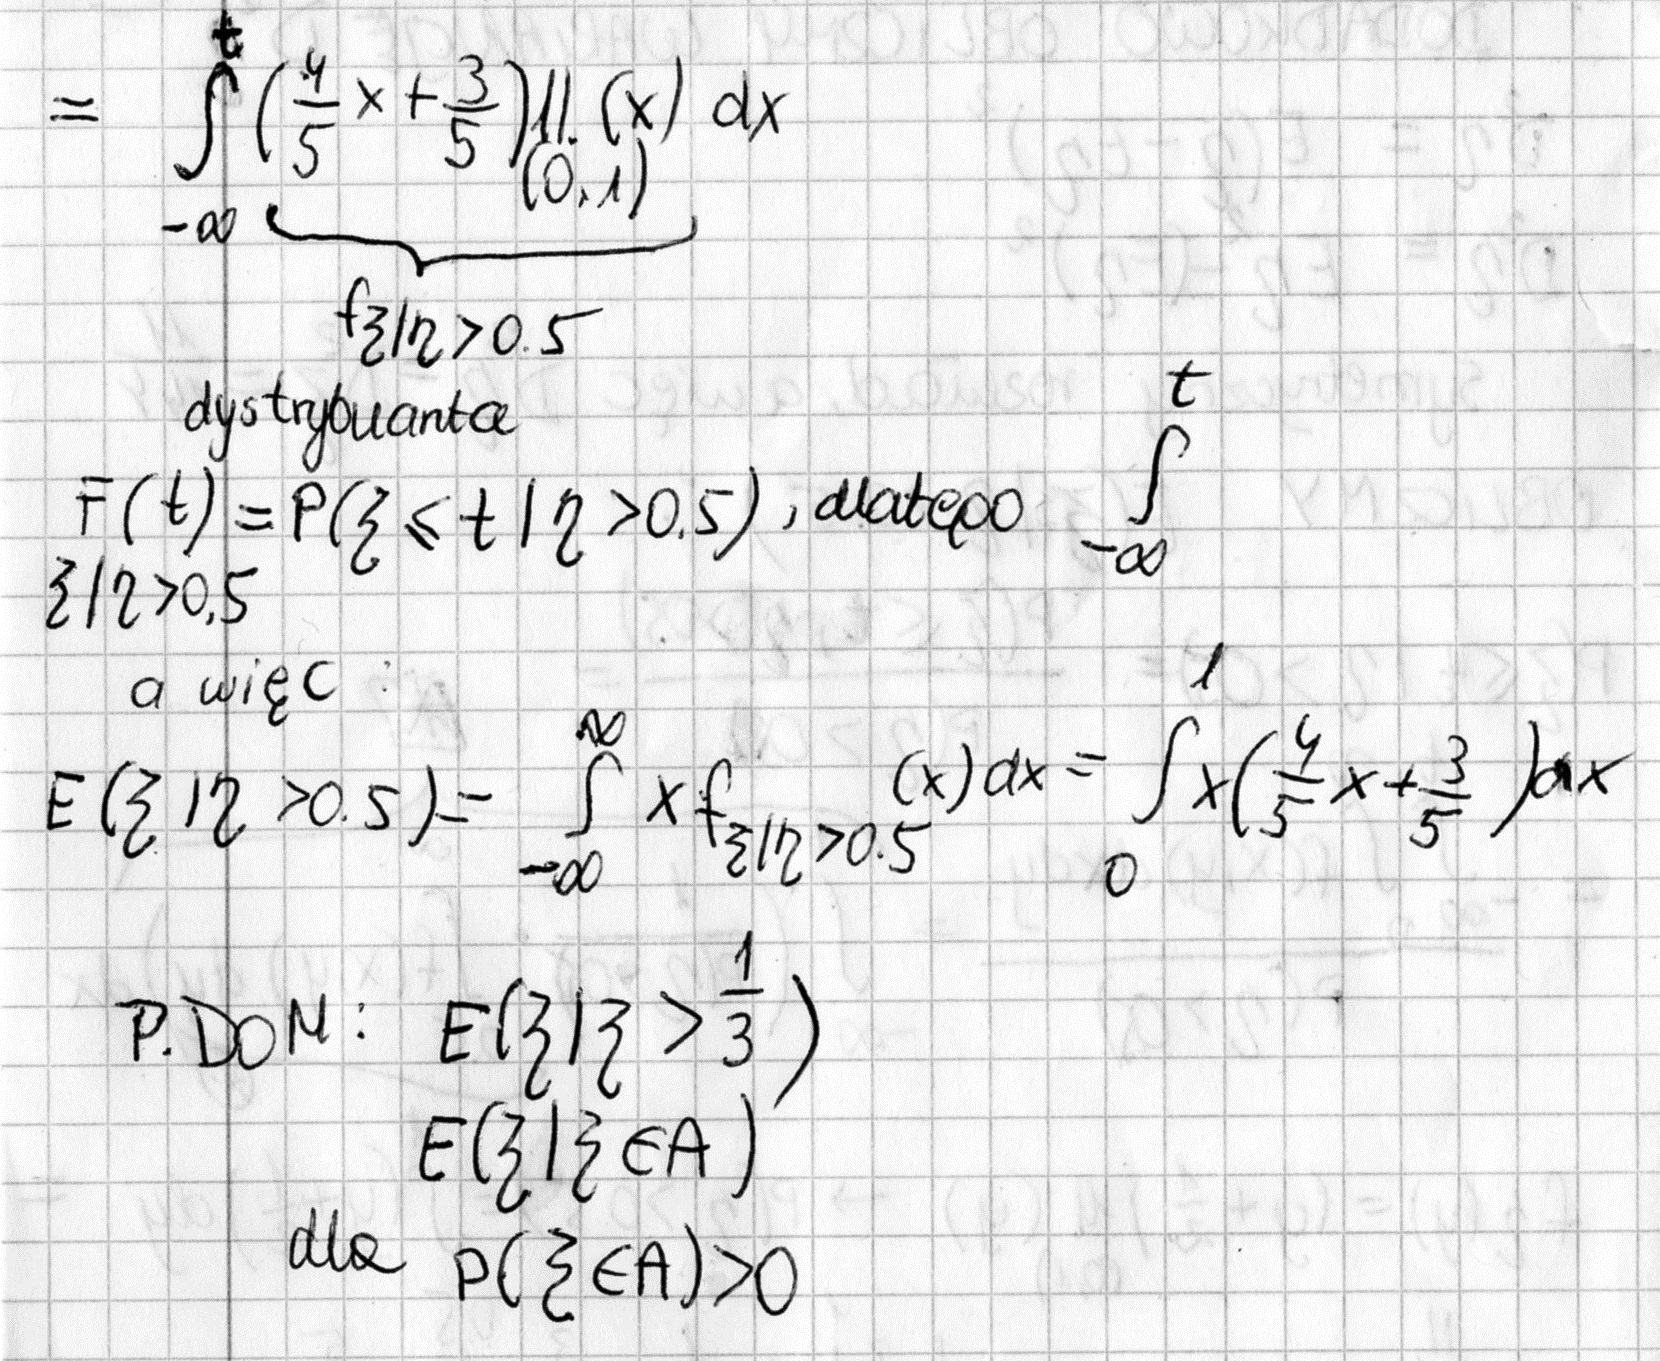 = ∫_{-∞}^{t} (4/5 x + 3/5) 𝟙_{(0,1)} (x) dx
f_{ξ|η>0.5}
dystrybuanta
F_{ξ|η>0,5}(t) = P(ξ ≤ t | η > 0.5), dlatego ∫_{-∞}^{t}
a więc :
E(ξ|η > 0.5) = ∫_{-∞}^{∞} x f_{ξ|η>0.5} (x) dx = ∫_{0}^{1} x(4/5 x + 3/5) dx
P. DOM: E(ξ|ξ > 1/3)
E(ξ|ξ ∈ A)
dla P(ξ ∈ A) > 0